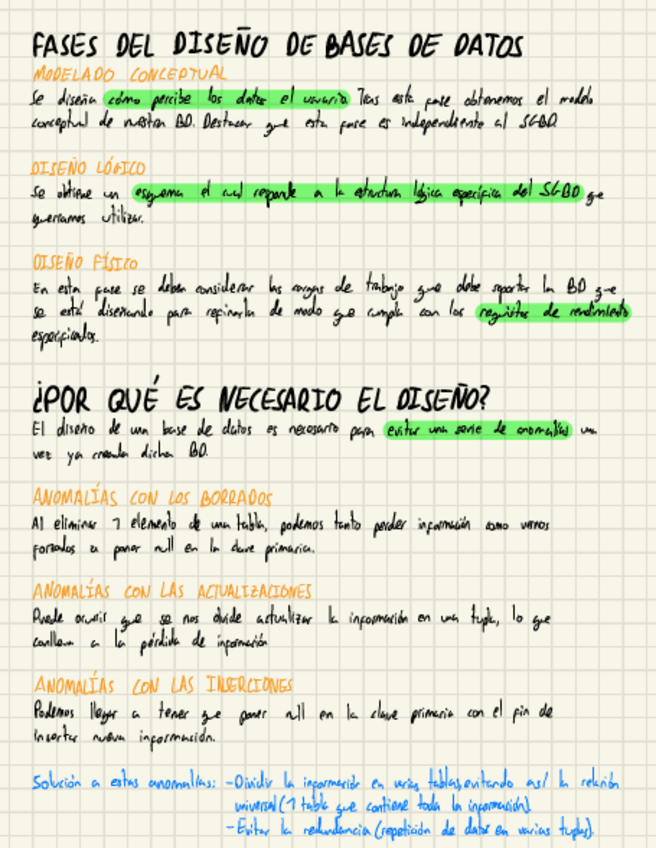 FASES DEL DISEÑO DE BASES DE DATOS
MODELADO CONCEPTUAL
Se diseña cómo percibe los datos el usuario. Tras esta fase obtenemos el modelo
conceptual de nuestra BD. Destacar que esta fase es independiente al SGBD.
DISEÑO LÓGICO
Se obtiene un esquema el cual responde a la estructura lógica específica del SGBD que
queramos utilizar.
DISEÑO FÍSICO
En esta fase se deben considerar las cargas de trabajo que debe soportar la BD que
se está diseñando para refinarla de modo que cumpla con los requisitos de rendimiento
especificados.
¿POR QUÉ ES NECESARIO EL DISEÑO?
El diseño de una base de datos es necesario para evitar una serie de anomalías una
vez ya creada dicha BD.
ANOMALÍAS CON LOS BORRADOS
Al eliminar 1 elemento de una tabla, podemos tanto perder información como vernos
forzados a poner null en la clave primaria.
ANOMALÍAS CON LAS ACTUALIZACIONES
Puede ocurrir que se nos olvide actualizar la información en una tupla, lo que
conlleva a la pérdida de información
ANOMALÍAS CON LAS INSERCIONES
Podemos llegar a tener que poner null en la clave primaria con el fin de
insertar nueva información.
Solución a estas anomalías: -Dividir la información en varias tablas, evitando así la relación
universal (1 tabla que contiene toda la información).
-Evitar la redundancia (repetición de datos en varias tuplas).